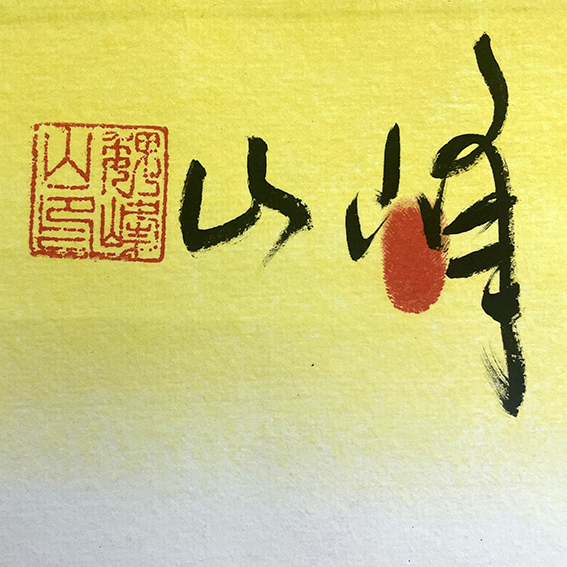 峰山
魏峰
山印